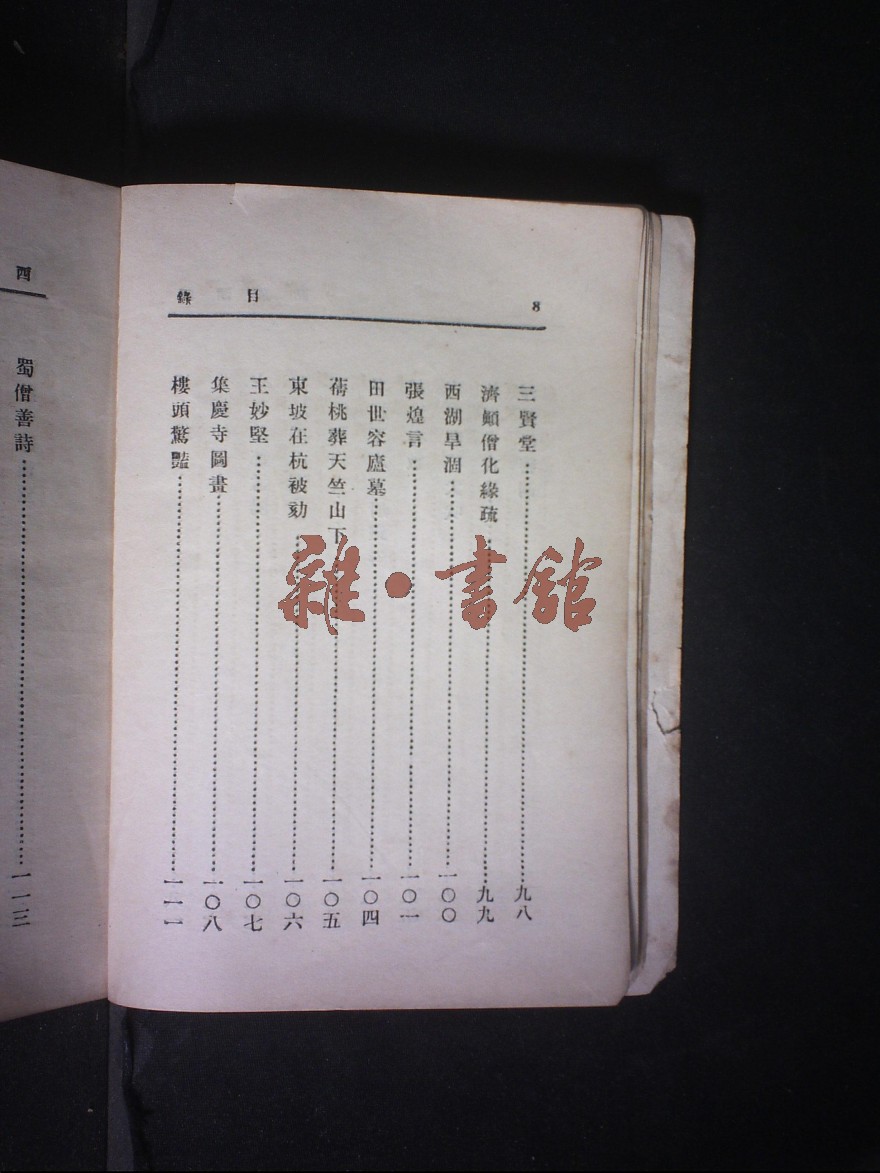 目錄 8
三賢堂 九八
濟顛僧化緣疏 九九
西湖旱涸 一〇〇
張煌言 一〇一
田世容廬墓 一〇四
蒨桃葬天竺山下 一〇五
東坡在杭被劾 一〇六
王妙堅 一〇七
集慶寺圖畫 一〇八
樓頭驚豔 一一一
西
蜀僧善詩 一一三
雜·書館